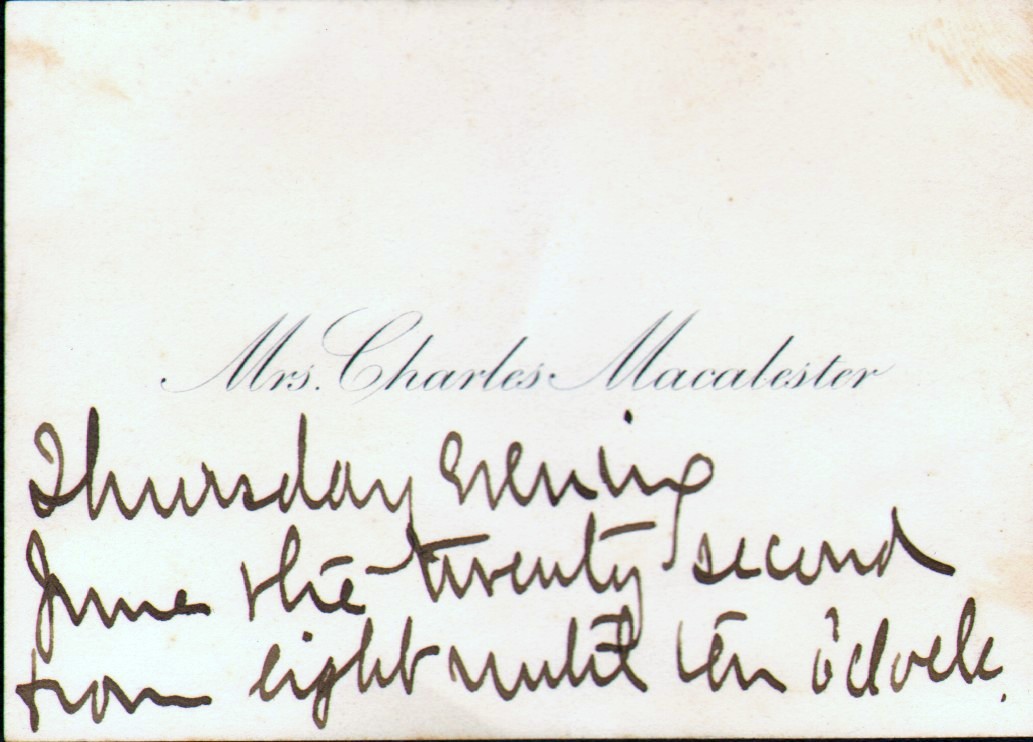 Mrs. Charles Macalester
Thursday evening
June the twenty second
from eight until ten o'clock.